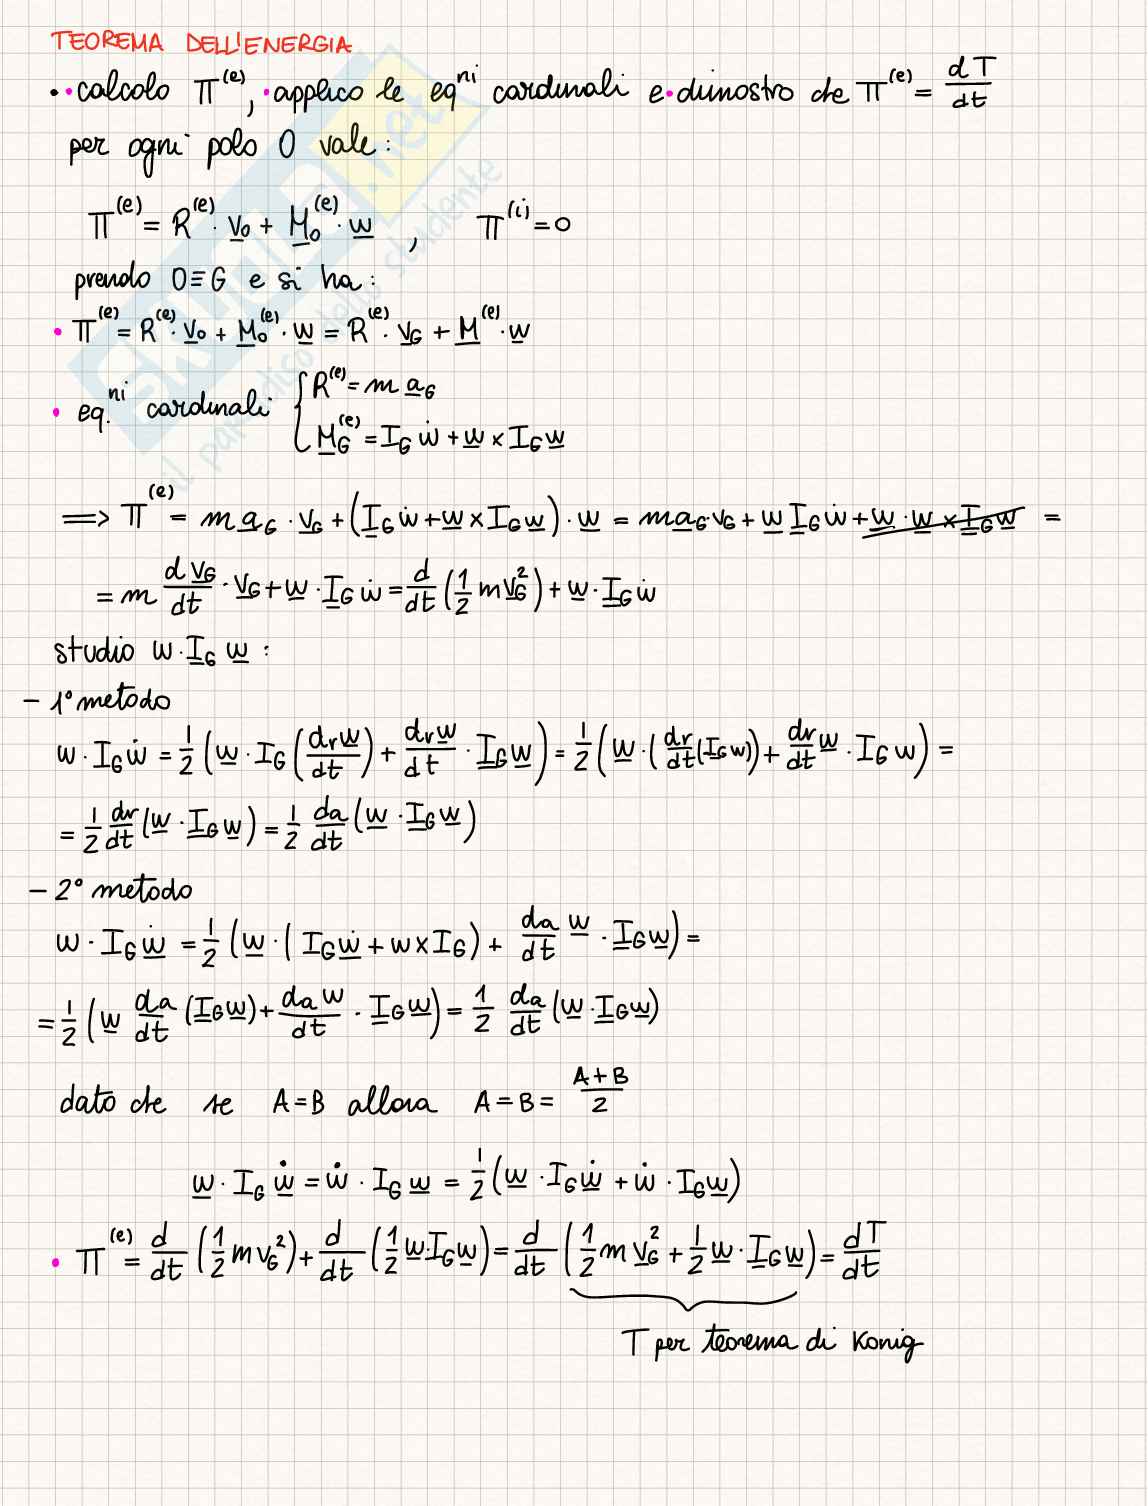 TEOREMA DELL'ENERGIA
• • calcolo Π^(e), • applico le eq^ni cardinali e • dimostro che Π^(e) = dT/dt
per ogni polo O vale:
Π^(e) = R^(e) · v_0 + M_0^(e) · w , Π^(i) = 0
prendo O ≡ G e si ha:
• Π^(e) = R^(e) · v_0 + M_0^(e) · w = R^(e) · v_G + M^(e) · w
• eq.^ni cardinali { R^(e) = m a_G
M_G^(e) = I_G ẇ + w × I_G w
⟹ Π^(e) = m a_G · v_G + (I_G ẇ + w × I_G w) · w = m a_G · v_G + w I_G ẇ + w · w × I_G w =
= m dv_G/dt · v_G + w · I_G ẇ = d/dt (1/2 m v_G^2) + w · I_G ẇ
studio w · I_G w :
- 1° metodo
w · I_G ẇ = 1/2 (w · I_G (d_r w/dt) + d_r w/dt · I_G w) = 1/2 (w · (dr/dt (I_G w)) + dr/dt w · I_G w) =
= 1/2 dr/dt (w · I_G w) = 1/2 da/dt (w · I_G w)
- 2° metodo
w · I_G ẇ = 1/2 (w · ( I_G ẇ + w × I_G) + da/dt w · I_G w) =
= 1/2 (w da/dt (I_G w) + da w/dt · I_G w) = 1/2 da/dt (w · I_G w)
dato che se A = B allora A = B = A + B/2
w · I_G ẇ = ẇ · I_G w = 1/2 (w · I_G ẇ + ẇ · I_G w)
• Π^(e) = d/dt (1/2 m v_G^2) + d/dt (1/2 w · I_G w) = d/dt (1/2 m v_G^2 + 1/2 w · I_G w) = dT/dt
T per teorema di Konig
SKUOLA.net
il paradiso dello studente